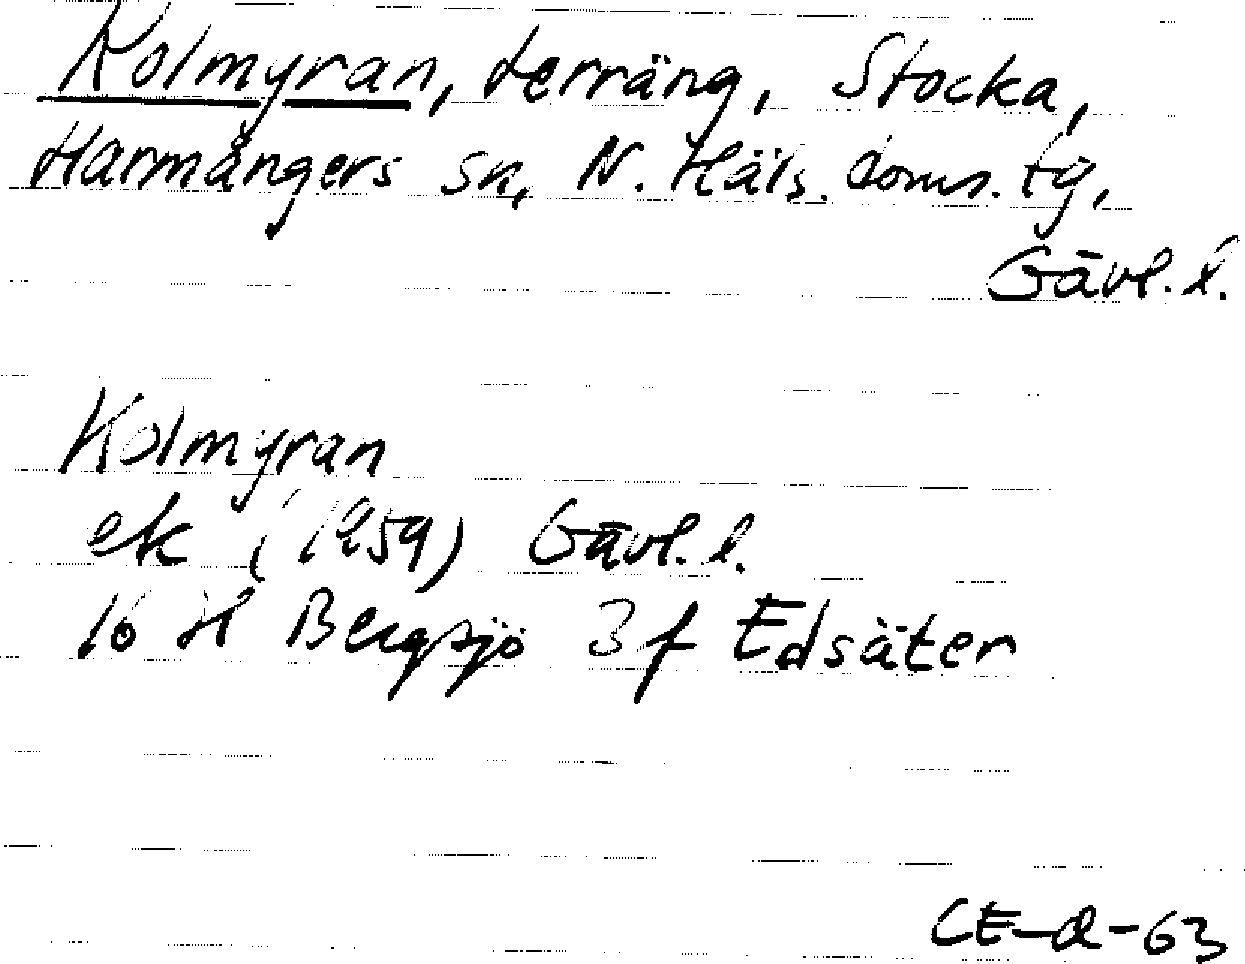 Kolmyran, terräng, Stocka,
Harmångers sn, N. Häls. doms. tg,
Gävl. l.
Kolmyran
ek (1959) Gävl. l.
16 H Bergsjö 3 f Edsäter
CE-a-63